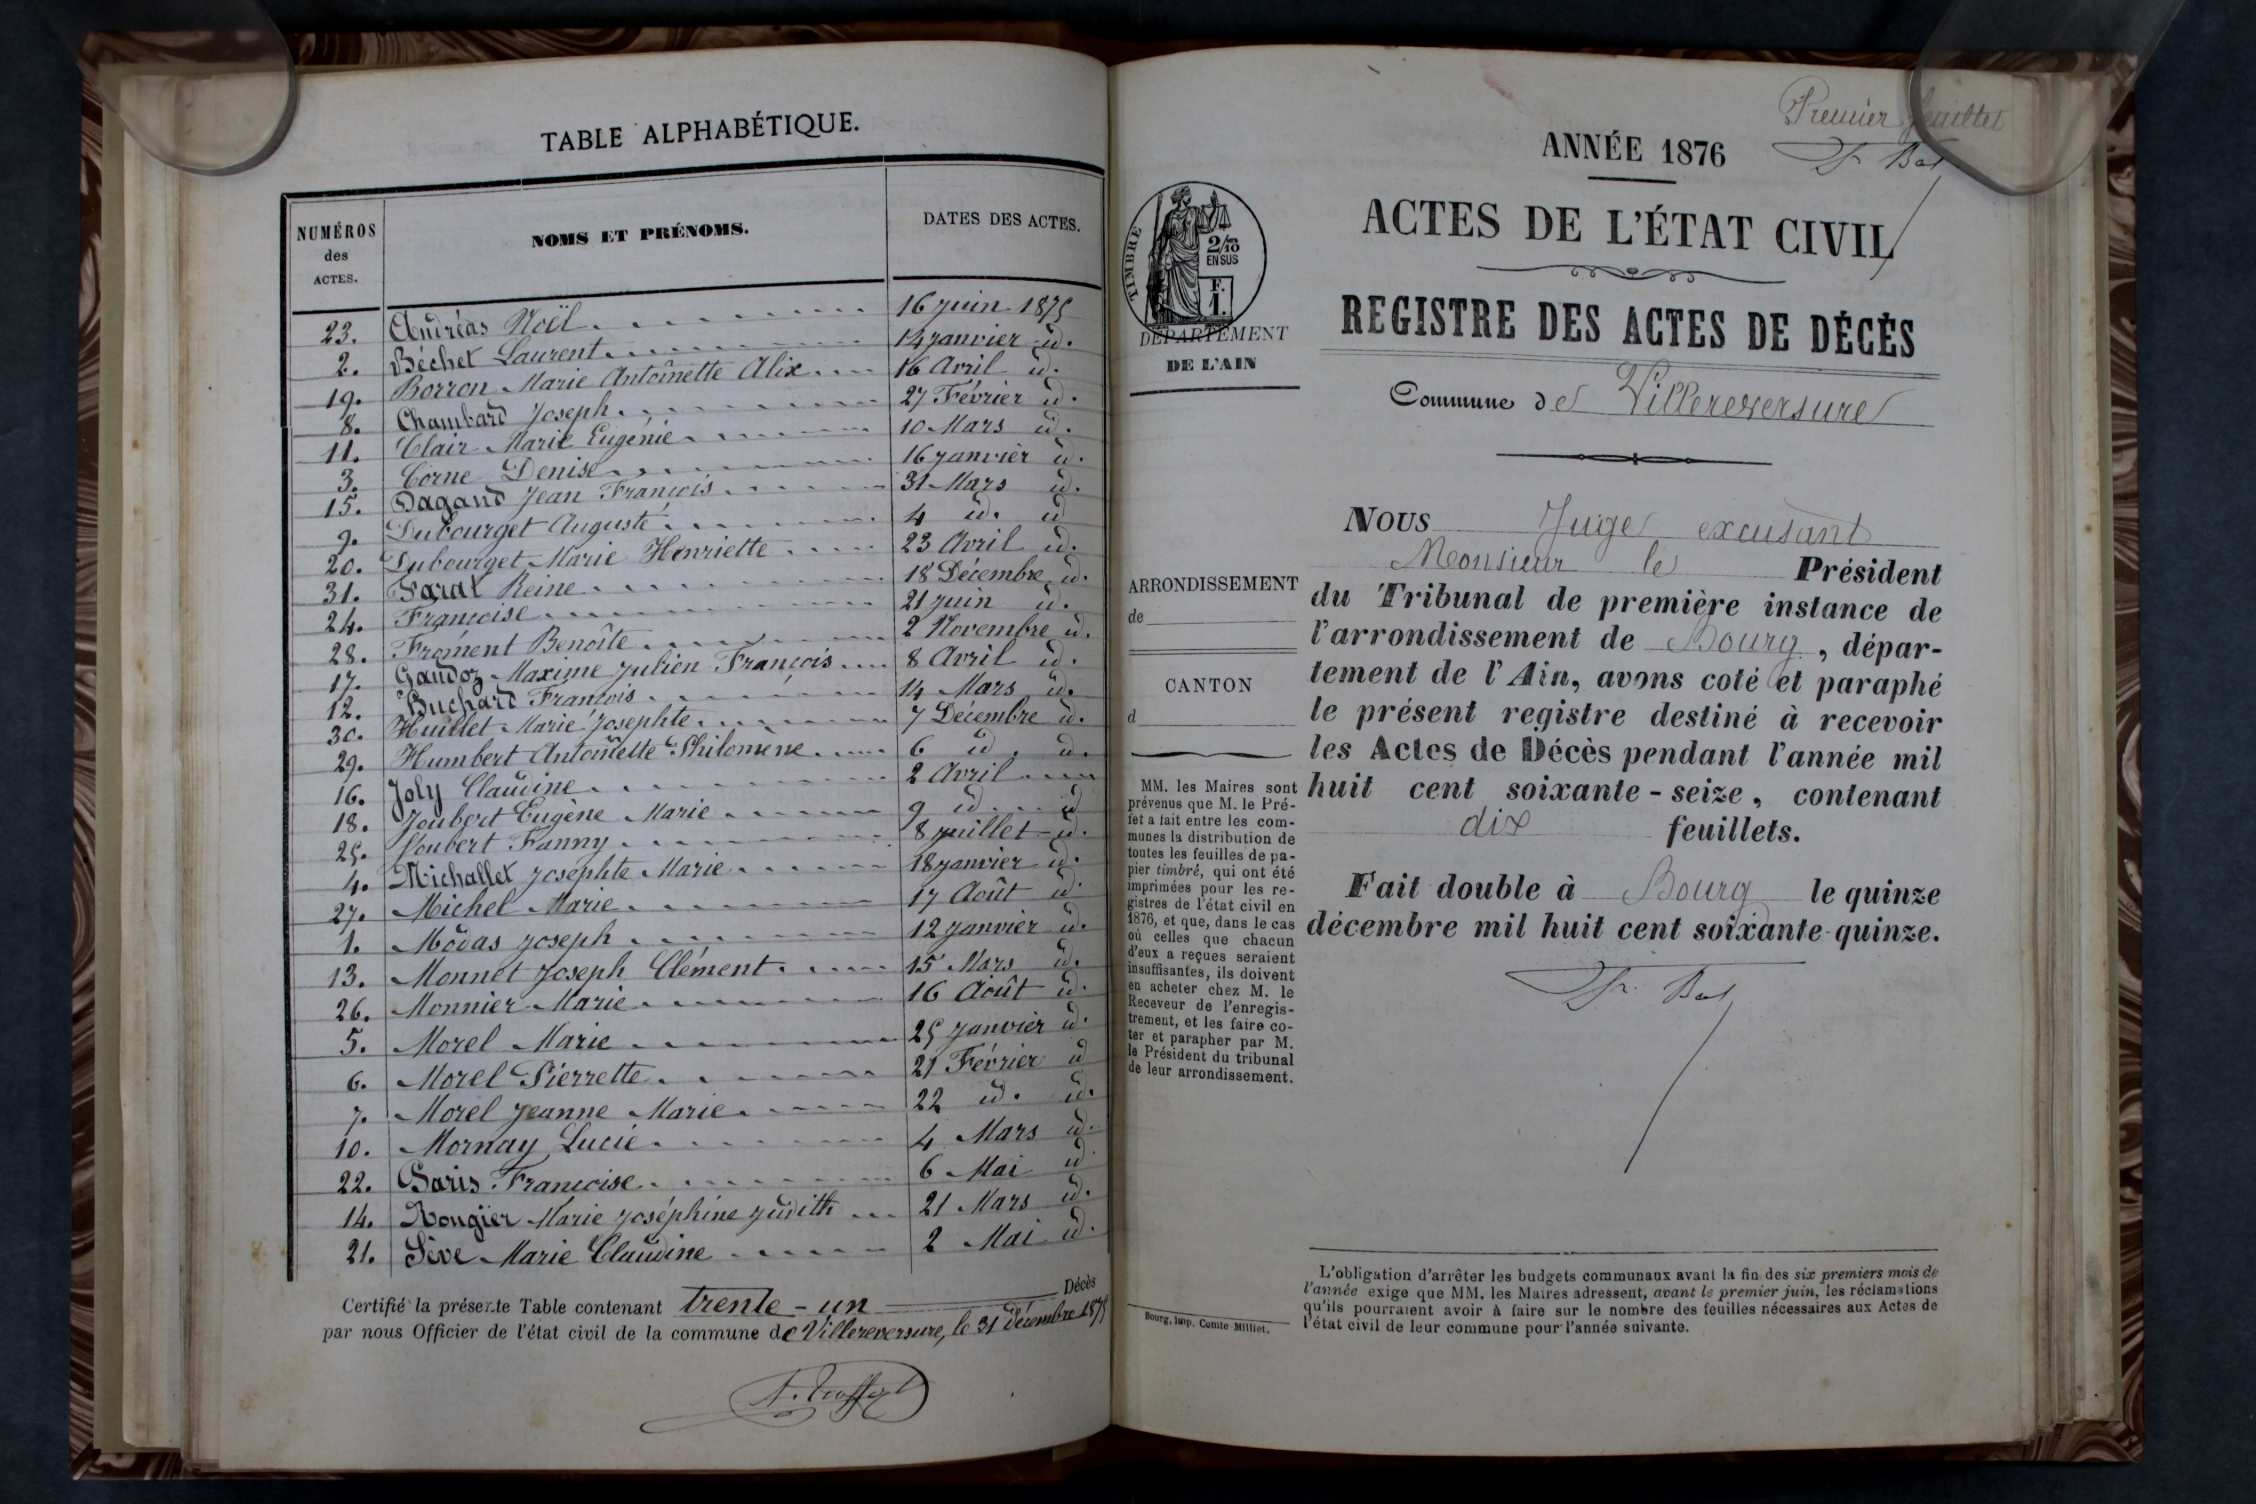 TABLE ALPHABÉTIQUE.
NUMÉROS des ACTES. NOMS ET PRÉNOMS. DATES DES ACTES.
23. Andréas Noël 16 juin 1875
2. Béchet Laurent 14 janvier id.
19. Borron Marie Antoinette Alix 16 Avril id.
8. Chambard Joseph 27 Février id.
11. Clair Marie Eugénie 10 Mars id.
3. Corne Denise 16 janvier id.
15. Dagand Jean François 31 Mars id.
9. Dubourget Auguste 4 id. id
20. Dubourget Marie Henriette 23 Avril id.
31. Farat Reine 18 Décembre id.
24. Françoise 21 juin id.
28. Froment Benoîte 2 Novembre id.
17. Gaudoz Maxime Julien François 8 Avril id.
12. Buchard François 14 Mars id.
30. Huillet Marie Josephte 7 Décembre id.
29. Humbert Antoinette Philomène 6 id. id.
16. Joly Claudine 2 Avril
18. Joubert Eugène Marie 9 id. id
25. Joubert Fanny 8 juillet id.
4. Michallet Josephte Marie 18 janvier id.
27. Michel Marie 17 Août id.
1. Modas Joseph 12 janvier id.
13. Monnet Joseph Clément 15 Mars id.
26. Monnier Marie 16 Août id.
5. Morel Marie 25 janvier id.
6. Morel Pierrette 21 Février id
7. Morel Jeanne Marie 22 id. id.
10. Mornay Lucie 4 Mars id.
22. Paris Françoise 6 Mai id
14. Rougier Marie Joséphine Judith 21 Mars id.
21. Sève Marie Claudine 2 Mai id.
Certifié la présente Table contenant trente-un Décès
par nous Officier de l'état civil de la commune de Villereversure, le 31 décembre 1875
Premier feuillet
ANNÉE 1876
ACTES DE L'ÉTAT CIVIL
TIMBRE
2/10
EN SUS
F.
1.
DÉPARTEMENT
DE L'AIN
REGISTRE DES ACTES DE DÉCÈS
Commune de Villereversure
NOUS Juge excusant
Monsieur le Président
du Tribunal de première instance de
l'arrondissement de Bourg, dépar-
tement de l'Ain, avons coté et paraphé
le présent registre destiné à recevoir
les Actes de Décès pendant l'année mil
huit cent soixante-seize, contenant
dix feuillets.
Fait double à Bourg le quinze
décembre mil huit cent soixante-quinze.
ARRONDISSEMENT
de
CANTON
d
MM. les Maires sont
prévenus que M. le Pré-
fet a fait entre les com-
munes la distribution de
toutes les feuilles de pa-
pier timbré, qui ont été
imprimées pour les re-
gistres de l'état civil en
1876, et que, dans le cas
où celles que chacun
d'eux a reçues seraient
insuffisantes, ils doivent
en acheter chez M. le
Receveur de l'enregis-
trement, et les faire co-
ter et parapher par M.
le Président du tribunal
de leur arrondissement.
Bourg, Imp. Comte Milliet.
L'obligation d'arrêter les budgets communaux avant la fin des six premiers mois de
l'année exige que MM. les Maires adressent, avant le premier juin, les réclamations
qu'ils pourraient avoir à faire sur le nombre des feuilles nécessaires aux Actes de
l'état civil de leur commune pour l'année suivante.